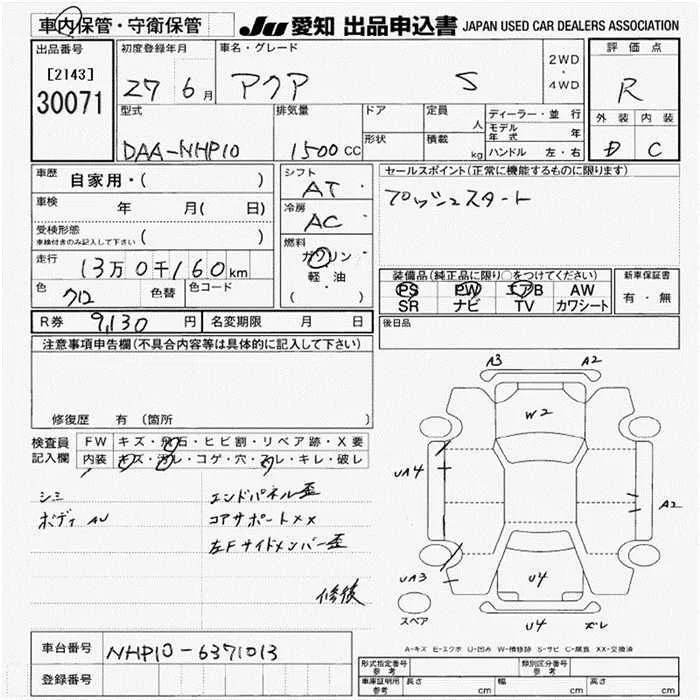 車内保管・守衛保管
JU 愛知 出品申込書 JAPAN USED CAR DEALERS ASSOCIATION
出品番号
[2143]
30071
初度登録年月
27 6月
車名・グレード
アクア S
2WD
・
4WD
評価点
R
外装 内装
D C
型式
DAA-NHP10
排気量
1500 CC
ドア
形状
定員
人
積載
kg
ディーラー・並行
モデル年式 年
ハンドル 左・右
車歴
自家用・( )
車検
年 月( 日)
受検形態
車検付きのみ記入して下さい ( )
走行
13万0千160km
色
色替
色コード
シフト
AT
冷房
AC
燃料
ガソリン
・
軽・油
( )
セールスポイント(正常に機能するものに限ります)
プッシュスタート
装備品(純正品に限り○をつけてください)
PS PW エアB AW
SR ナビ TV カワシート
新車保証書
有・無
R券 9,130 円
名変期限 月 日
後日品
注意事項申告欄(不具合内容等は具体的に記入して下さい)
修復歴 有 (箇所 )
検査員
記入欄
FW キズ・飛石・ヒビ割・リペア跡・X要
内装 キズ・汚レ・コゲ・穴・スレ・キレ・破レ
シミ
ボディ AU
エンドパネル歪
コアサポートXX
左Fサイドメンバー歪
修復
A3 A2
W2
UA4
A2
UA3
U4
スペア
U4 ズレ
A-キズ E-エクボ U-凹み W-補修跡 S-サビ C-腐食 XX-交換済
車台番号
NHP10-6371013
登録番号
形式指定番号
参考
類別区分番号
参考
車庫証明用
参考
長さ cm 幅 cm 高さ cm